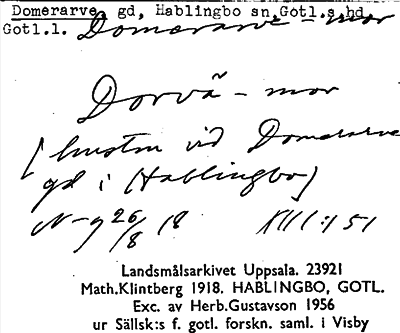 Domerarve, gd, Hablingbo sn, Gotl.s.hd
Gotl.l. Domerarve-mor
Dorvã-mor
(hustru vid Domerarve
gd i Hablingbo)
N-g 26/8 18 XIII:1 51
Landsmålsarkivet Uppsala. 23921
Math.Klintberg 1918. HABLINGBO, GOTL.
Exc. av Herb.Gustavson 1956
ur Sällsk:s f. gotl. forskn. saml. i Visby